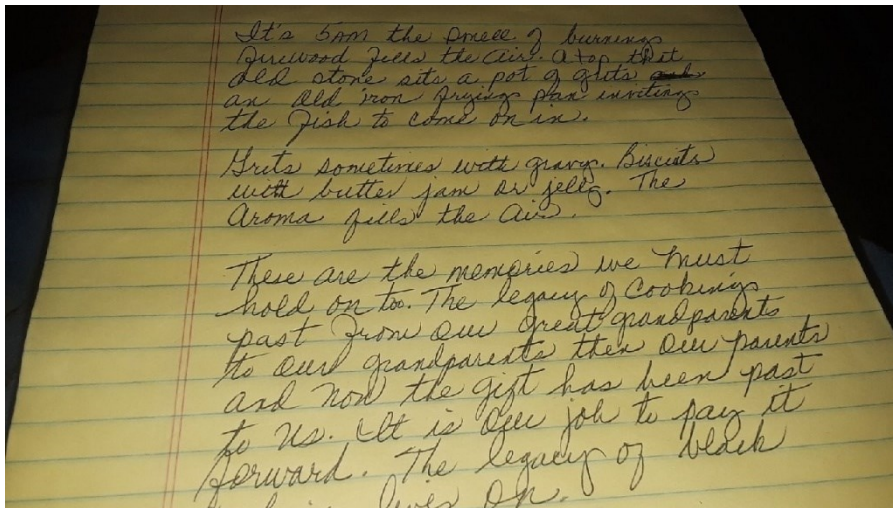 It's 5am the smell of burning
firewood fills the air. Atop that
old stone sits a pot of grits
an old iron frying pan inviting
the fish to come on in.
Grits sometimes with gravy. Biscuits
with butter jam or jelly. The
aroma fills the air.
These are the memories we must
hold on too. The legacy of cooking
past from our great grandparents
to our grandparents then our parents
and now the gift has been past
to us. It is our job to pay it
forward. The legacy of black
lives on.